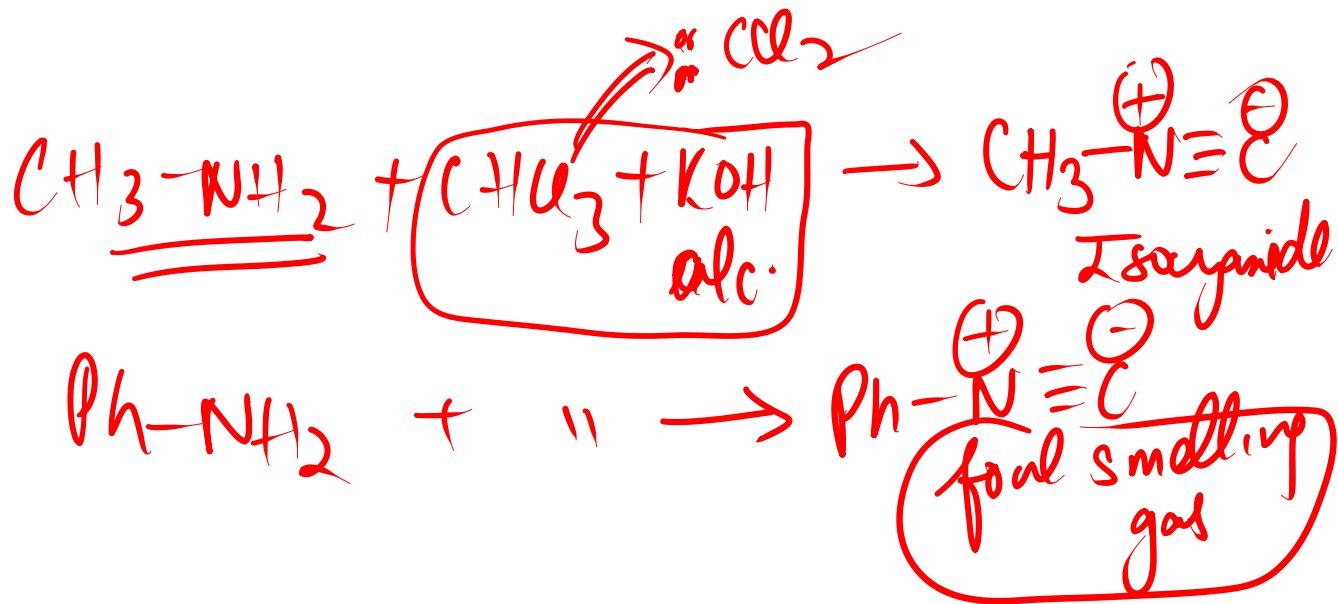 :CCl2
CH3-NH2 + CHCl3 + KOH → CH3-N≡C
⊕ ⊖
alc.
Isocyanide
⊕ ⊖
Ph-NH2 + " → Ph-N≡C
foul smelling
gas